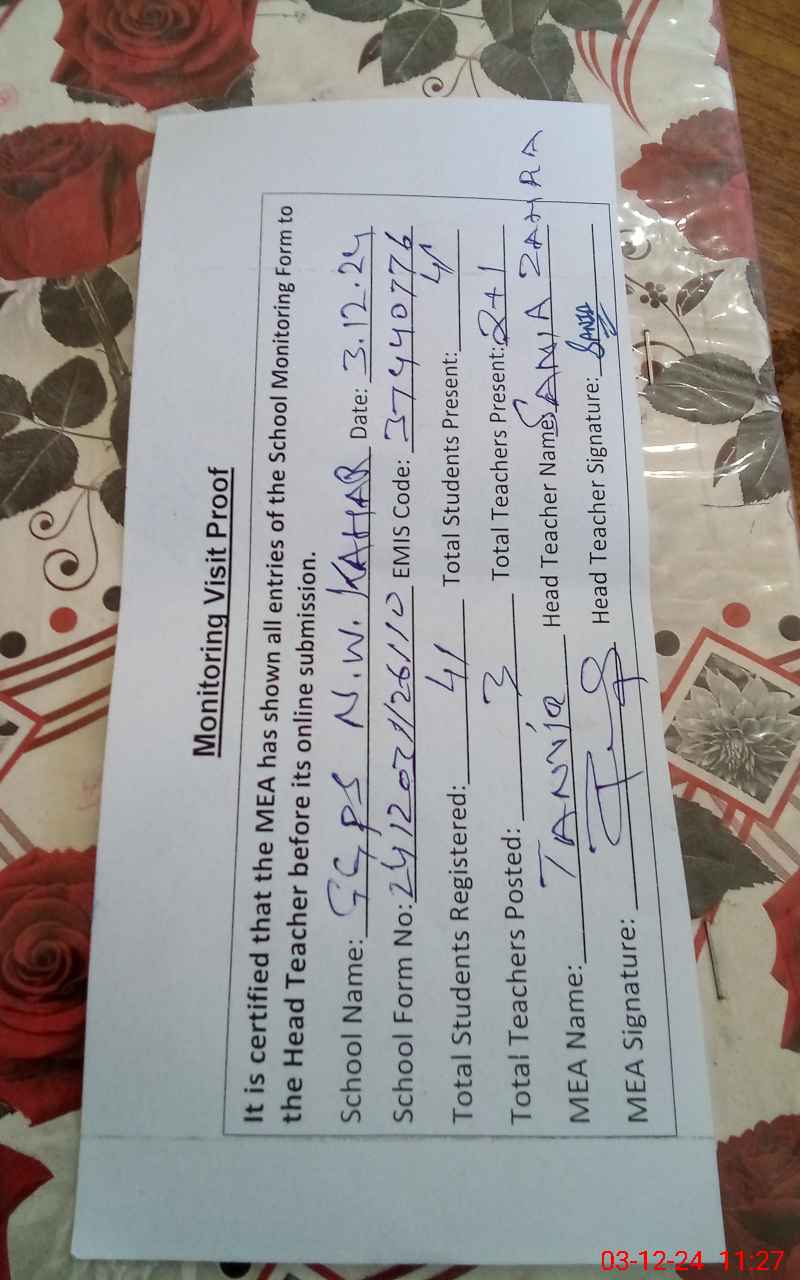 Monitoring Visit Proof
It is certified that the MEA has shown all entries of the School Monitoring Form to
the Head Teacher before its online submission.
School Name: GGPS N.W. KAHAR Date: 3.12.24
School Form No: EMIS Code: 37440776
Total Students Registered: 41 Total Students Present: 41
Total Teachers Posted: 3 Total Teachers Present: 2+1
MEA Name: TANVIR Head Teacher Name: SANIA ZAHRA
MEA Signature: Head Teacher Signature: Sania
03-12-24 11:27